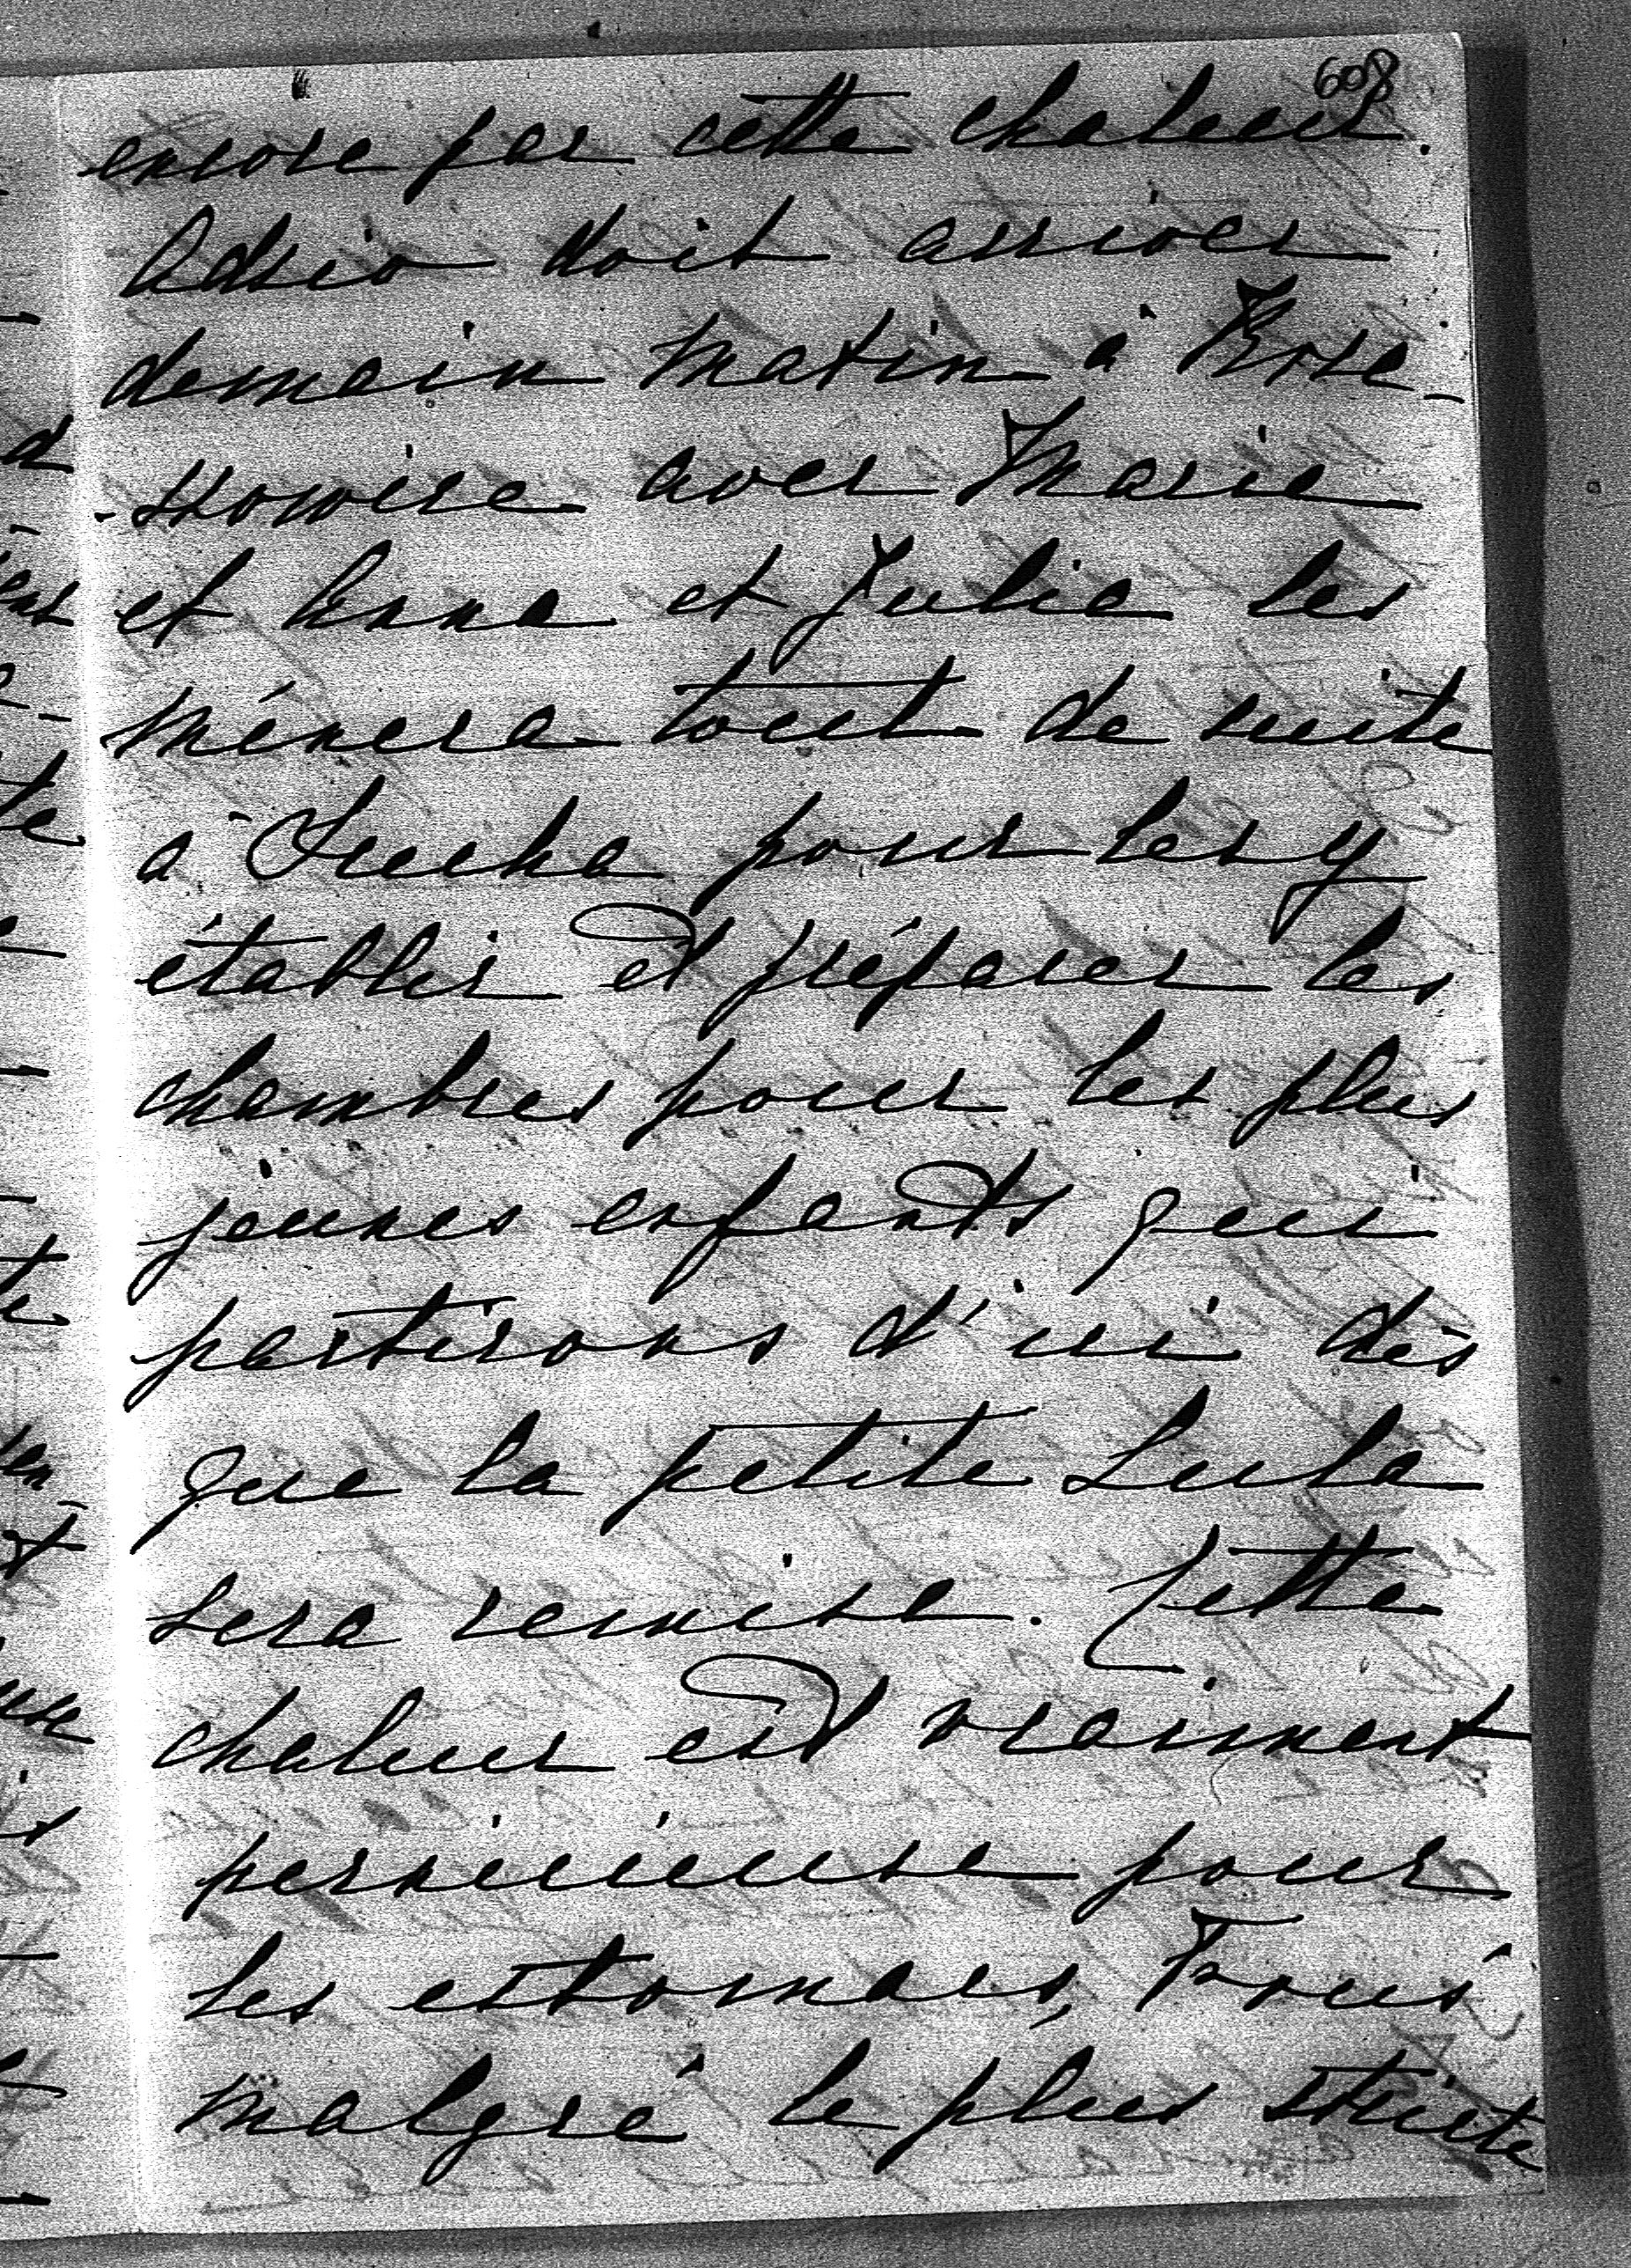 608
encore par cette chaleur.
Adzio doit arriver
demain matin à Krze-
-szowice avec Marie
et Anna et Julie les
ménera tout de suite
à Sucha pour les y
établir et préparer les
chambres pour les plus
jeunes enfants qui
partirons d'ici dès
que la petite Lula
sera remise. Cette
chaleur est vraiment
pernicieuse pour
les estomacs, Tous
malgré le plus stricte